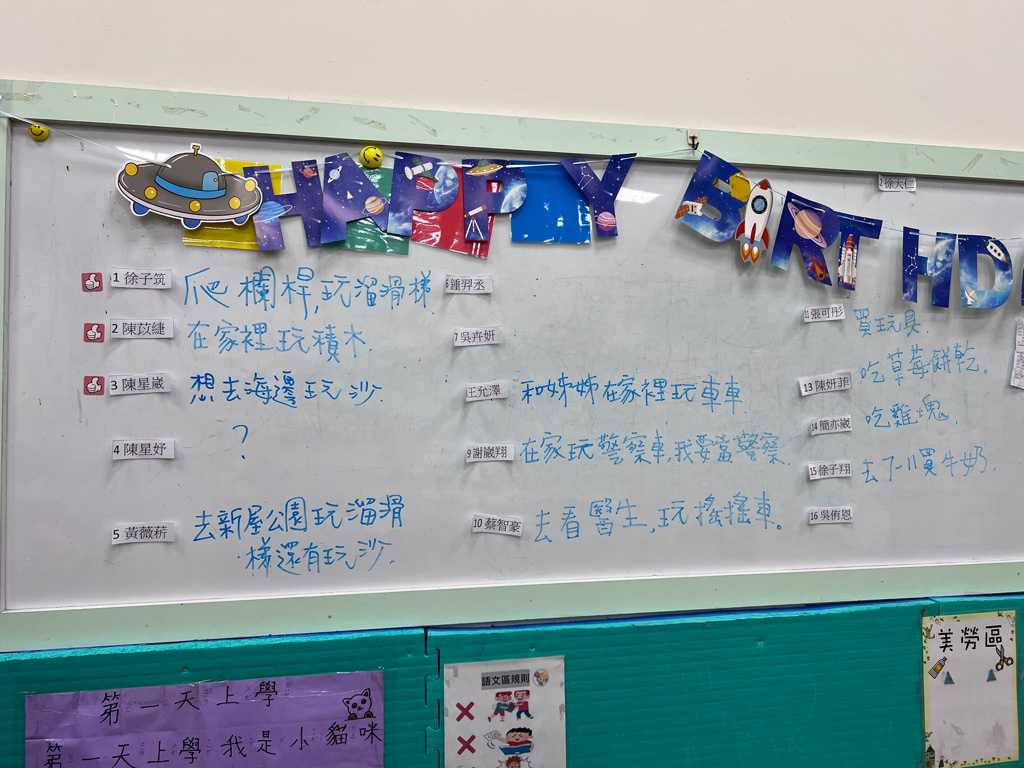 HAPPY BIRTHD
2 徐大仁
1 徐子筑 爬欄桿,玩溜滑梯
2 陳苡緁 在家裡玩積木.
3 陳星崴 想去海邊玩沙.
4 陳星妤 ?
5 黃薇菥 去新屋公園玩溜滑
梯還有玩沙.
6 鍾羿丞
7 吳卉妍
王允澤 和姊姊在家裡玩車車
9 謝崴翔 在家玩警察車,我要當警察.
10 蔡智豪 去看醫生,玩搖搖車。
11 張可彤 買玩具.
13 陳妍菲 吃草莓餅乾.
14 簡亦崴 吃雞塊,
15 徐子翔 去7-11買牛奶.
16 吳侑恩
第一天上學
第一天上學我是小貓咪
語文區規則
美勞區